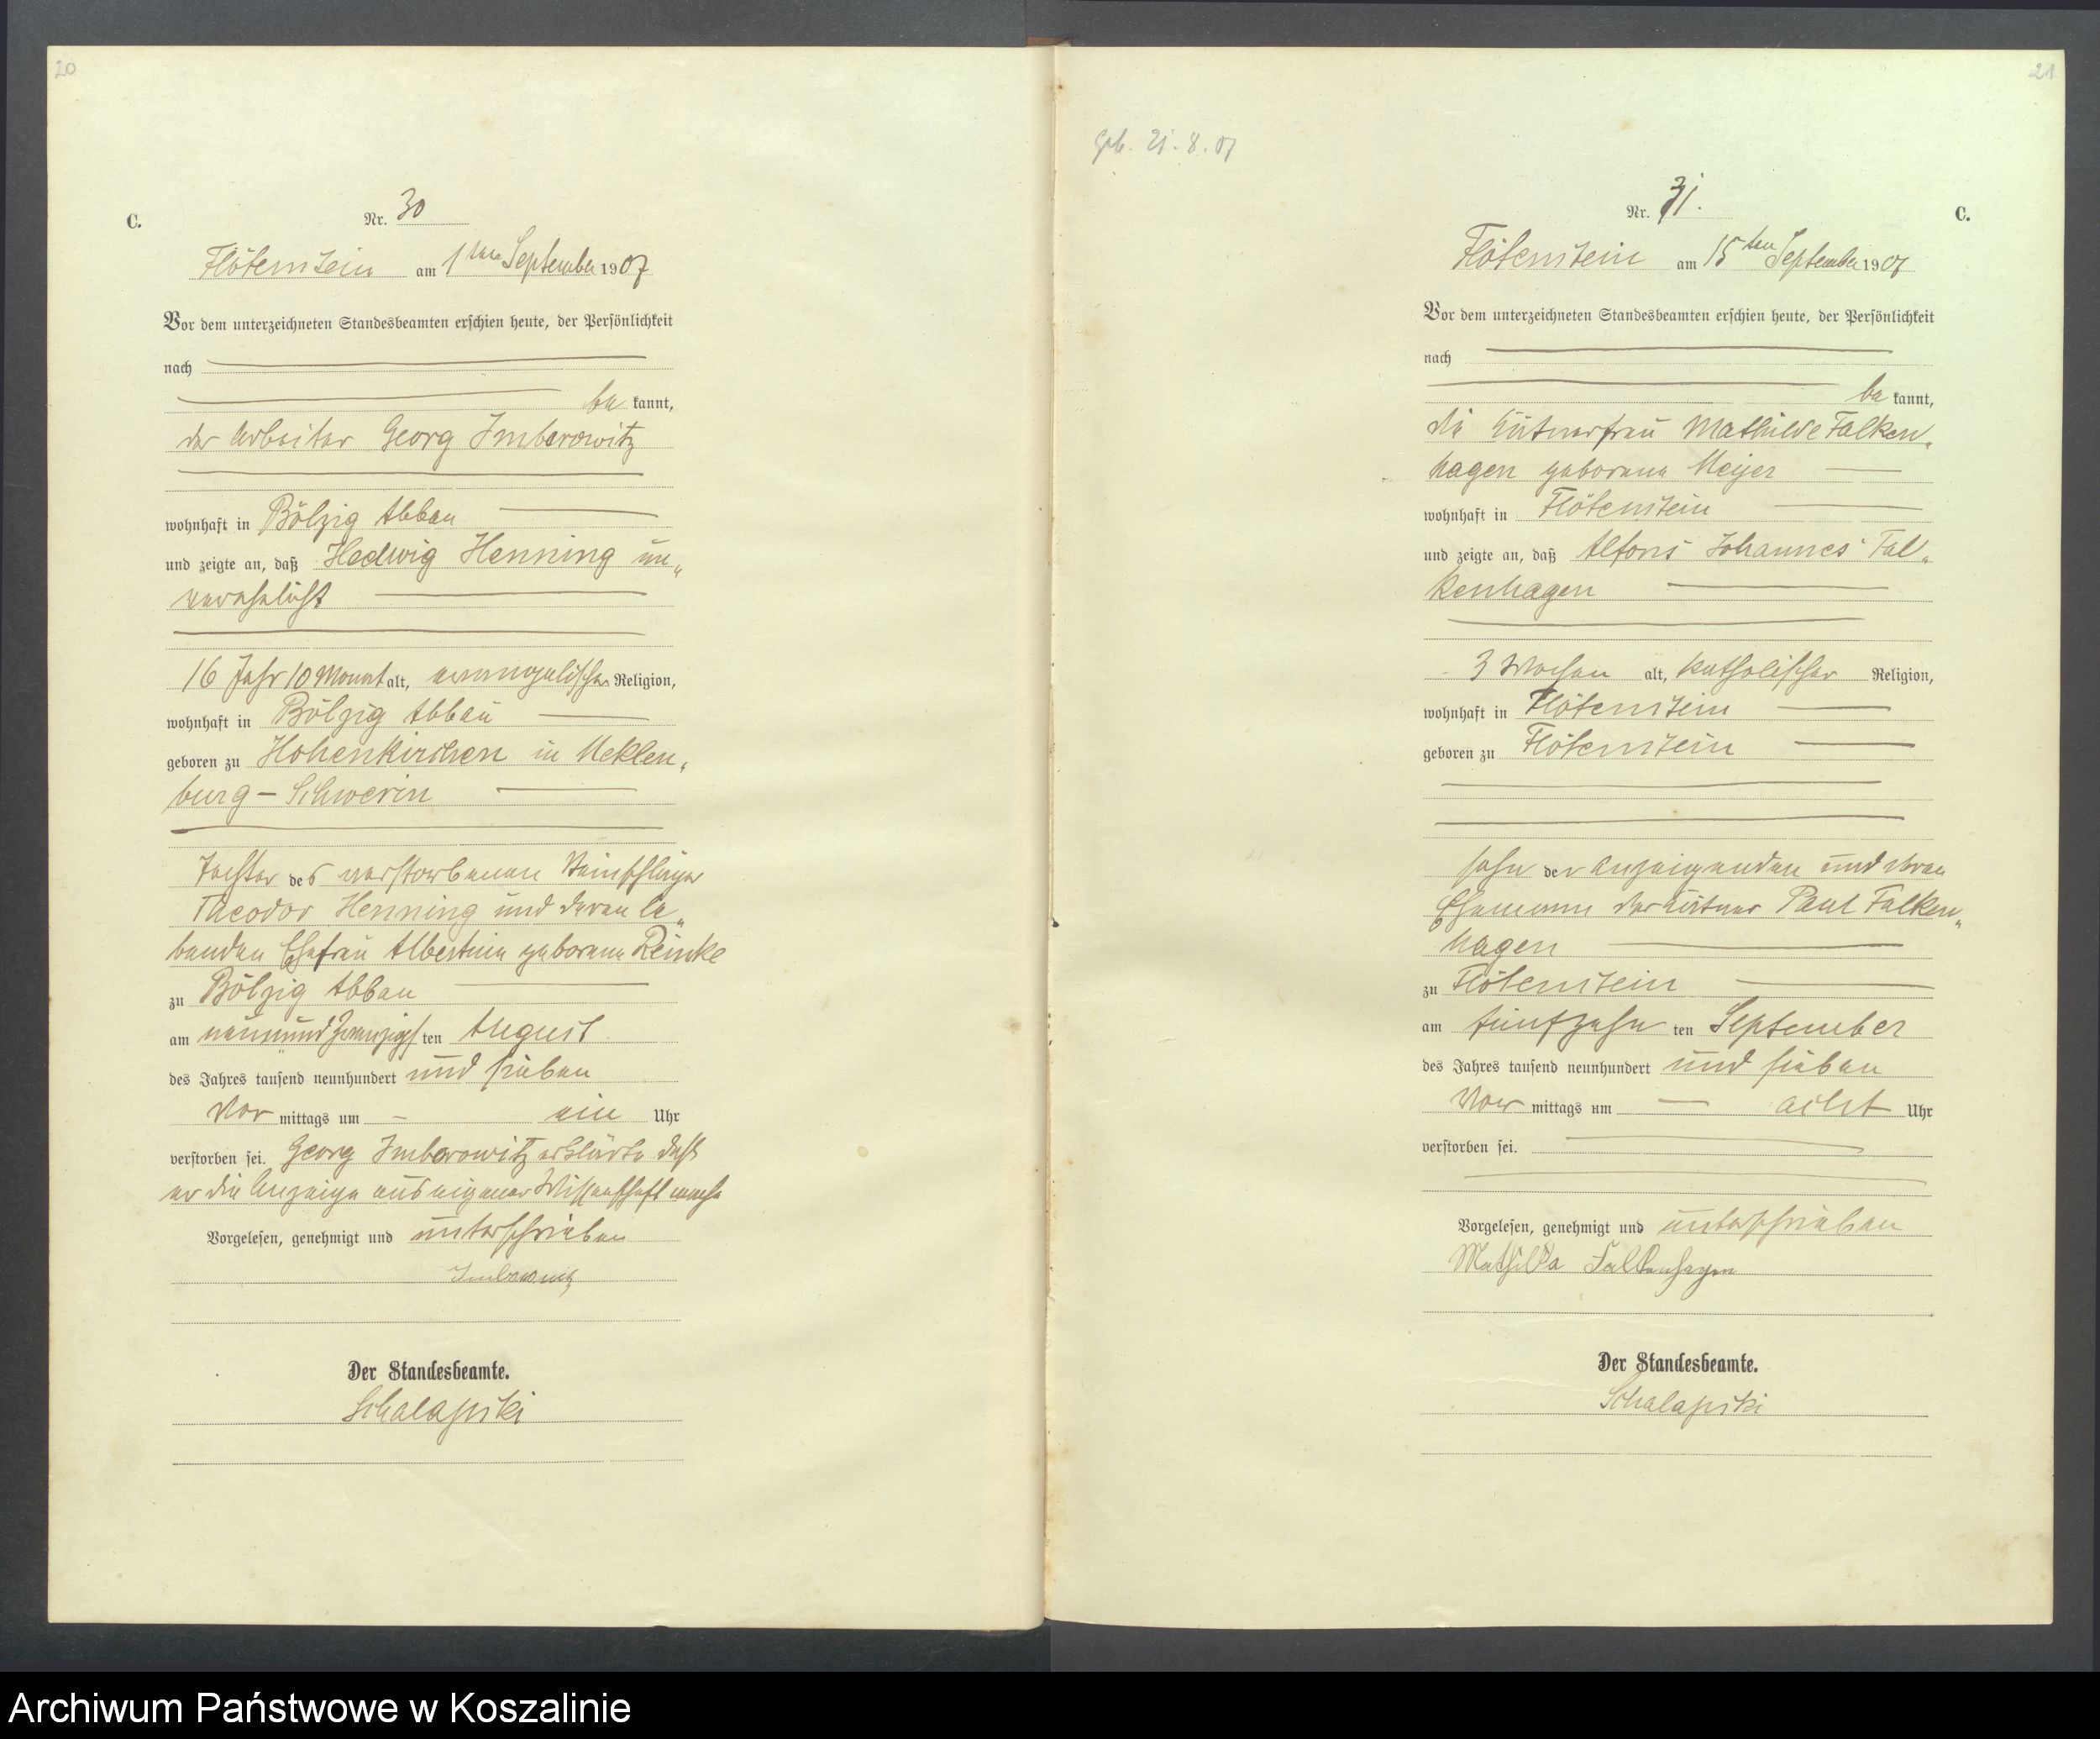 20
C.
Nr. 30
Flötenstein am 1ten September 1907
Vor dem unterzeichneten Standesbeamten erschien heute, der Persönlichkeit
nach
be kannt,
der Arbeiter Georg Imberowitz
wohnhaft in Bölzig Abbau
und zeigte an, daß Hedwig Henning un„
verehelicht
16 Jahr 10 Monat alt, evangelischer Religion,
wohnhaft in Bölzig Abbau
geboren zu Hohenkirchen in Meklen„
burg - Schwerin
Tochter des verstorbenen Steinschläger
Theodor Henning und deren le„
benden Ehefrau Albertine geborene Reinke
zu Bölzig Abbau
am neunundzwanzigsten August
des Jahres tausend neunhundert und sieben
Vor mittags um - ein Uhr
verstorben sei. Georg Imberowitz erklärte daß
er die Anzeige aus eigener Wissenschaft mache
Vorgelesen, genehmigt und unterschrieben
Imberowitz
Der Standesbeamte.
Schalapski
21
Geb. 21.8.07
Nr. 31.
C.
Flötenstein am 15ten September 1907
Vor dem unterzeichneten Standesbeamten erschien heute, der Persönlichkeit
nach
be kannt,
die Kätnerfrau Mathilde Falken„
hagen geborene Meyer
wohnhaft in Flötenstein
und zeigte an, daß Alfons Johannes Fal„
kenhagen
3 Wochen alt, katholischer Religion,
wohnhaft in Flötenstein
geboren zu Flötenstein
Sohn der Anzeigenden und deren
Ehemann der Kätner Paul Falken„
hagen
zu Flötenstein
am fünfzehn ten September
des Jahres tausend neunhundert und sieben
Vor mittags um - acht Uhr
verstorben sei.
Vorgelesen, genehmigt und unterschrieben
Mathilde Falkenhagen
Der Standesbeamte.
Schalapski
Archiwum Państwowe w Koszalinie